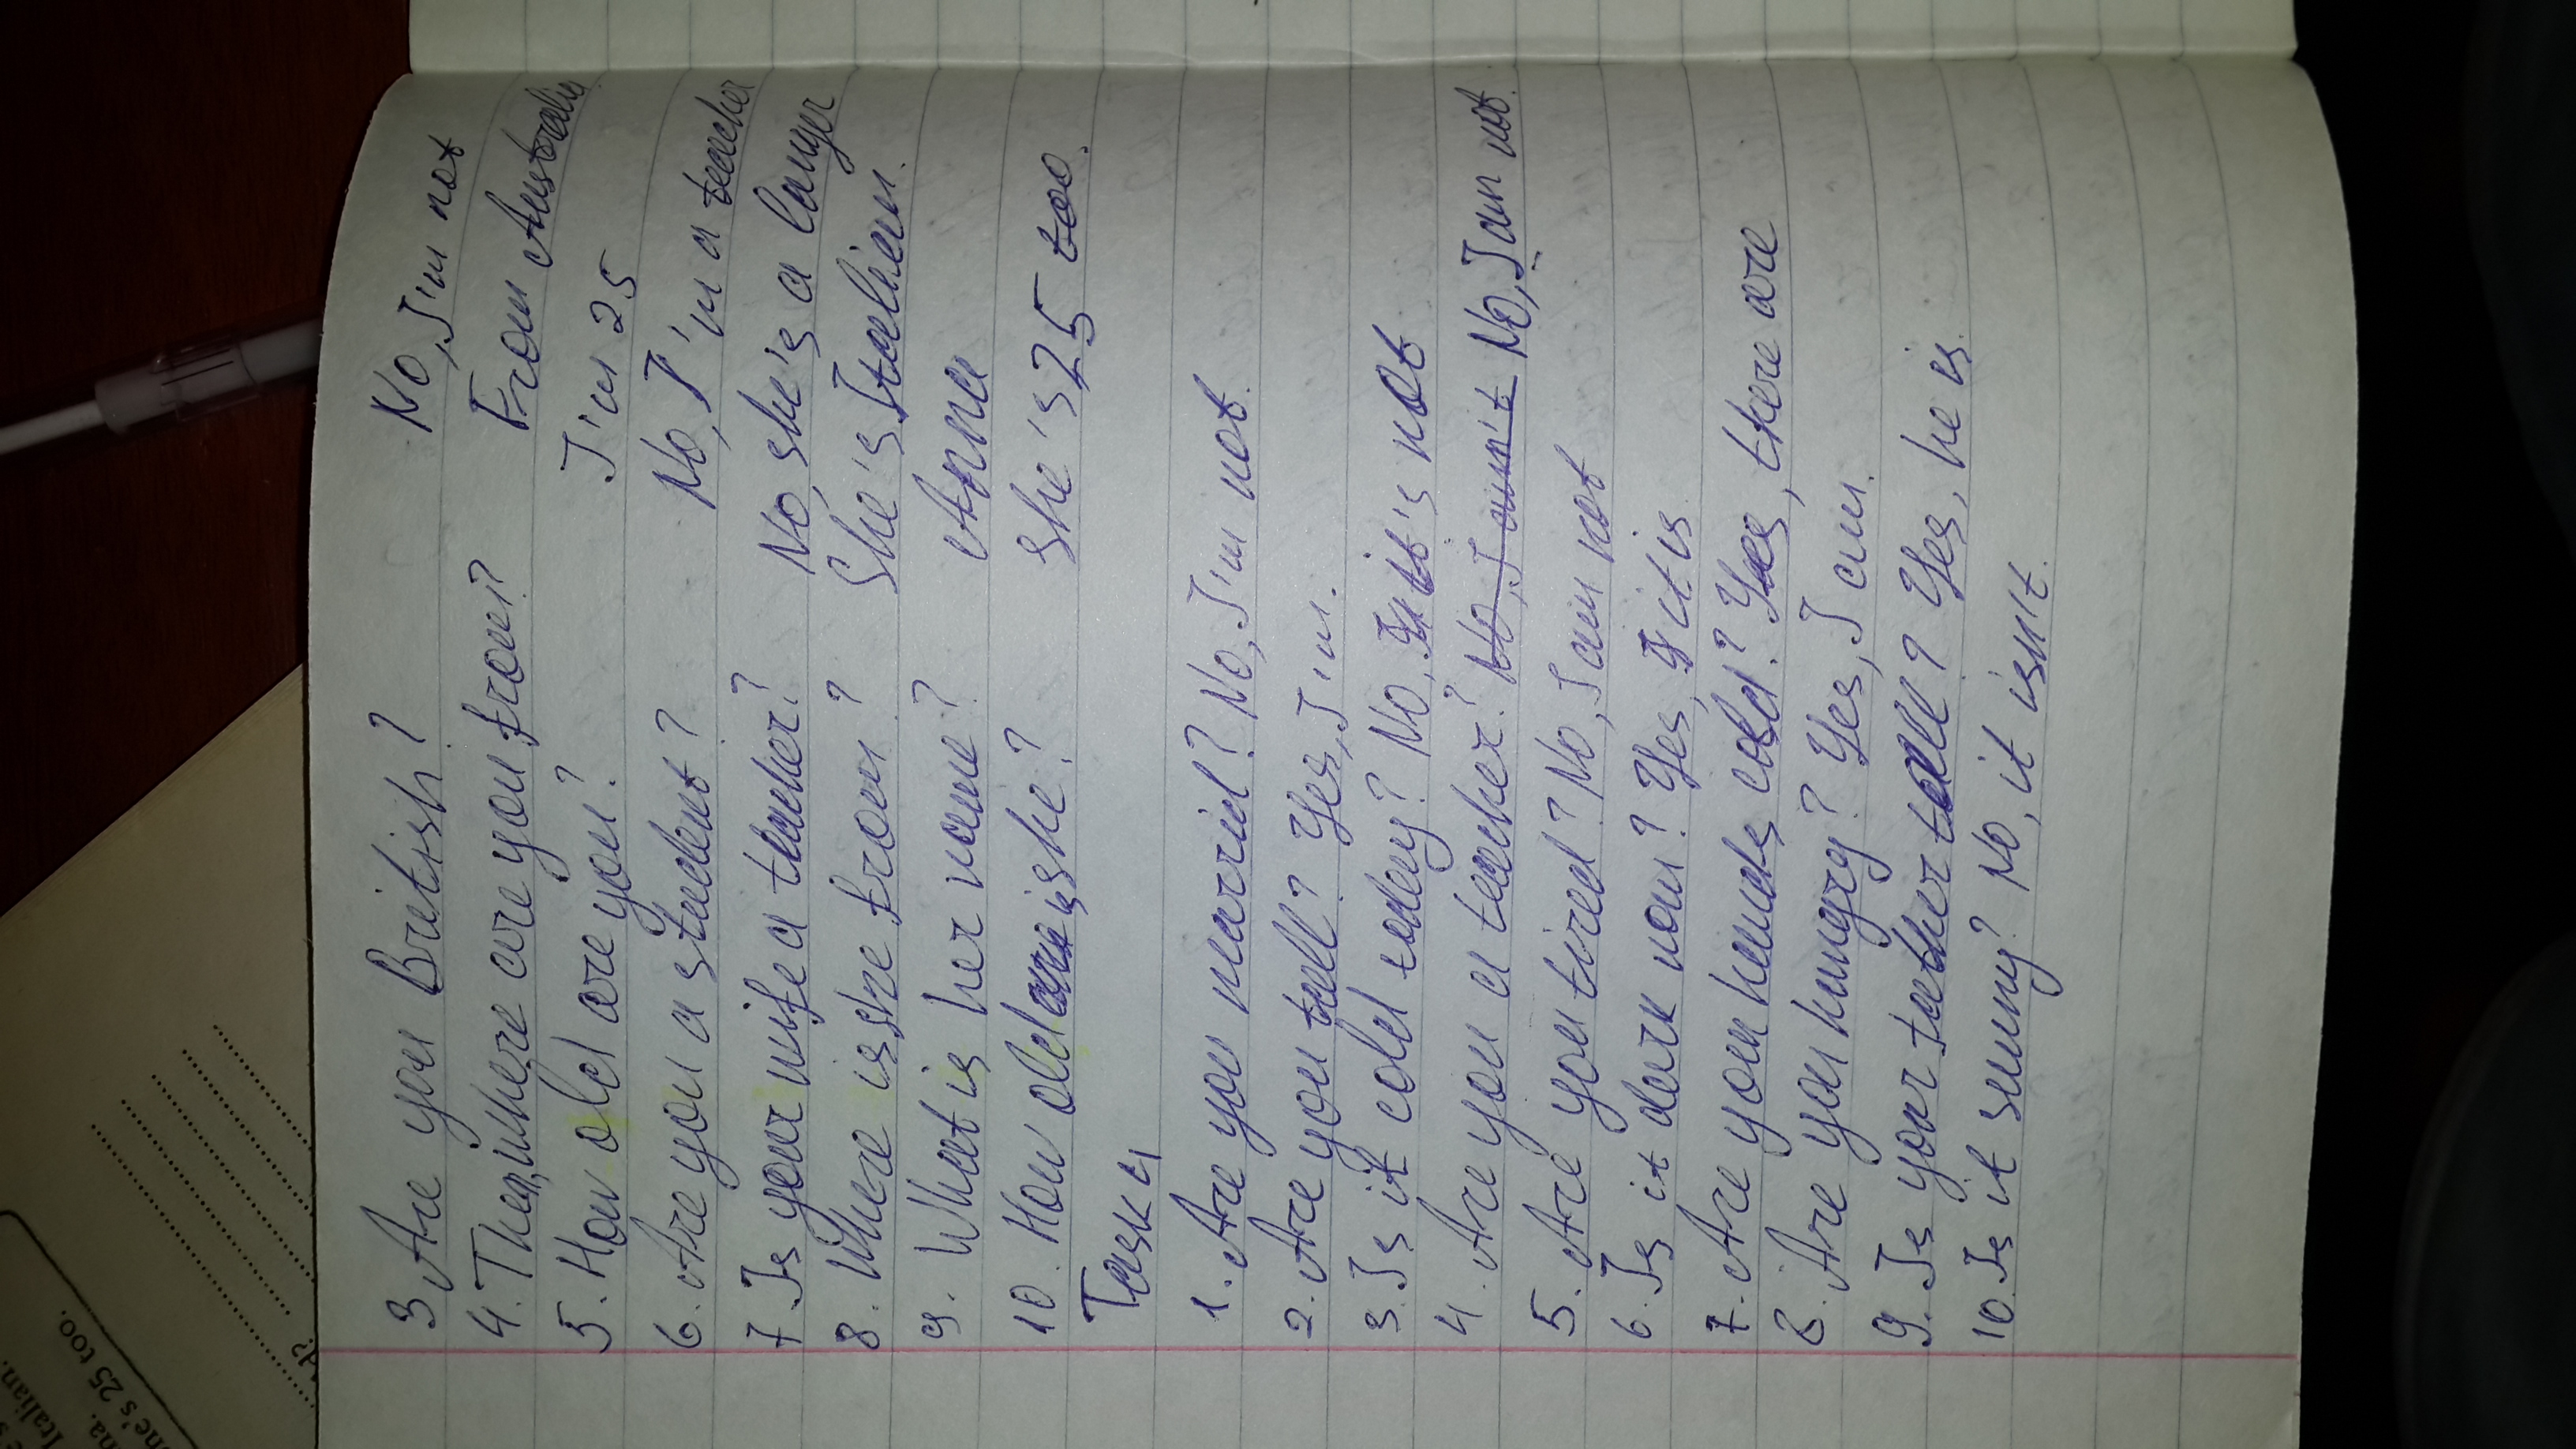 Italian.
na.
he's 25 too.
d?
3 Are you British? No, I'm not
4. Then, where are you from? From Australia
5. How old are you? I'm 25
6. Are you a student? No, I'm a teacher
7 Is your wife a teacher? No, she's a lauyer
8. Where is she from? She's Italian.
9. What is her name? Anna
10. How old is she? She's 25 too.
Task 4
1. Are you marrid? No, I'm not.
2. Are you tall? Yes, I'm.
3. Is it cold today? No, it's not
4. Are you a teacher? No, I amn't No, I am not.
5. Are you tired? No, I am not
6. Is it dark now? Yes, it is
7. Are your hands cold? Yes, there are
8. Are you hungry? Yes, I am.
9. Is your father tall? Yes, he is.
10. Is it sunny? No, it isn't.